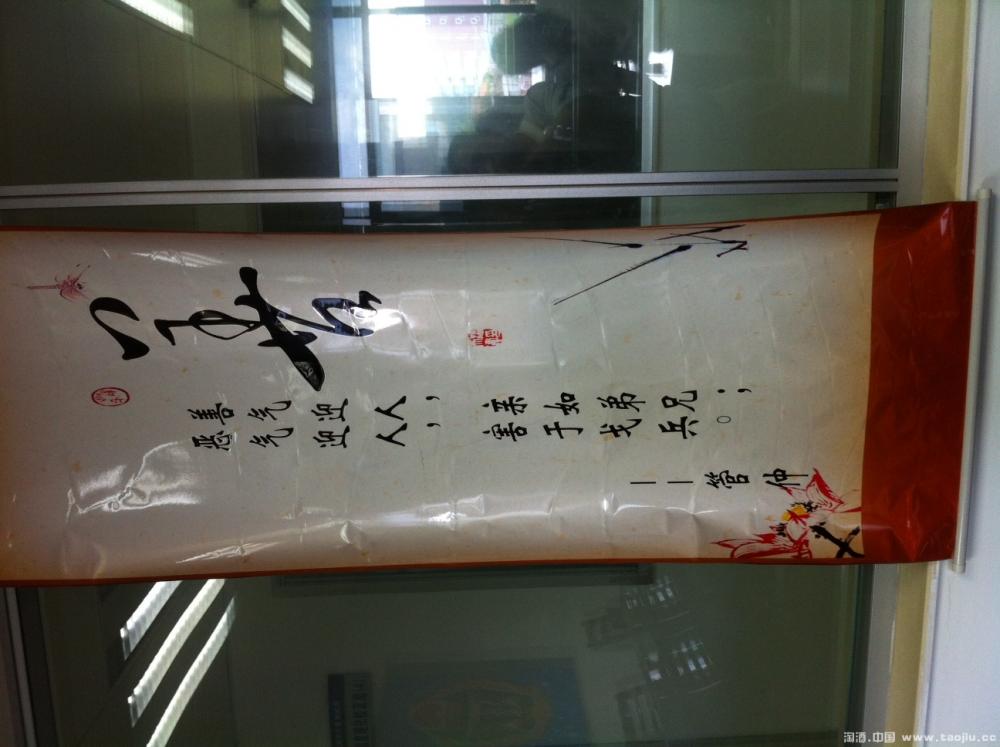 善气迎人，亲如弟兄；
恶气迎人，害于戈兵。
——管仲
淘酒.中国 www.taojiu.cc